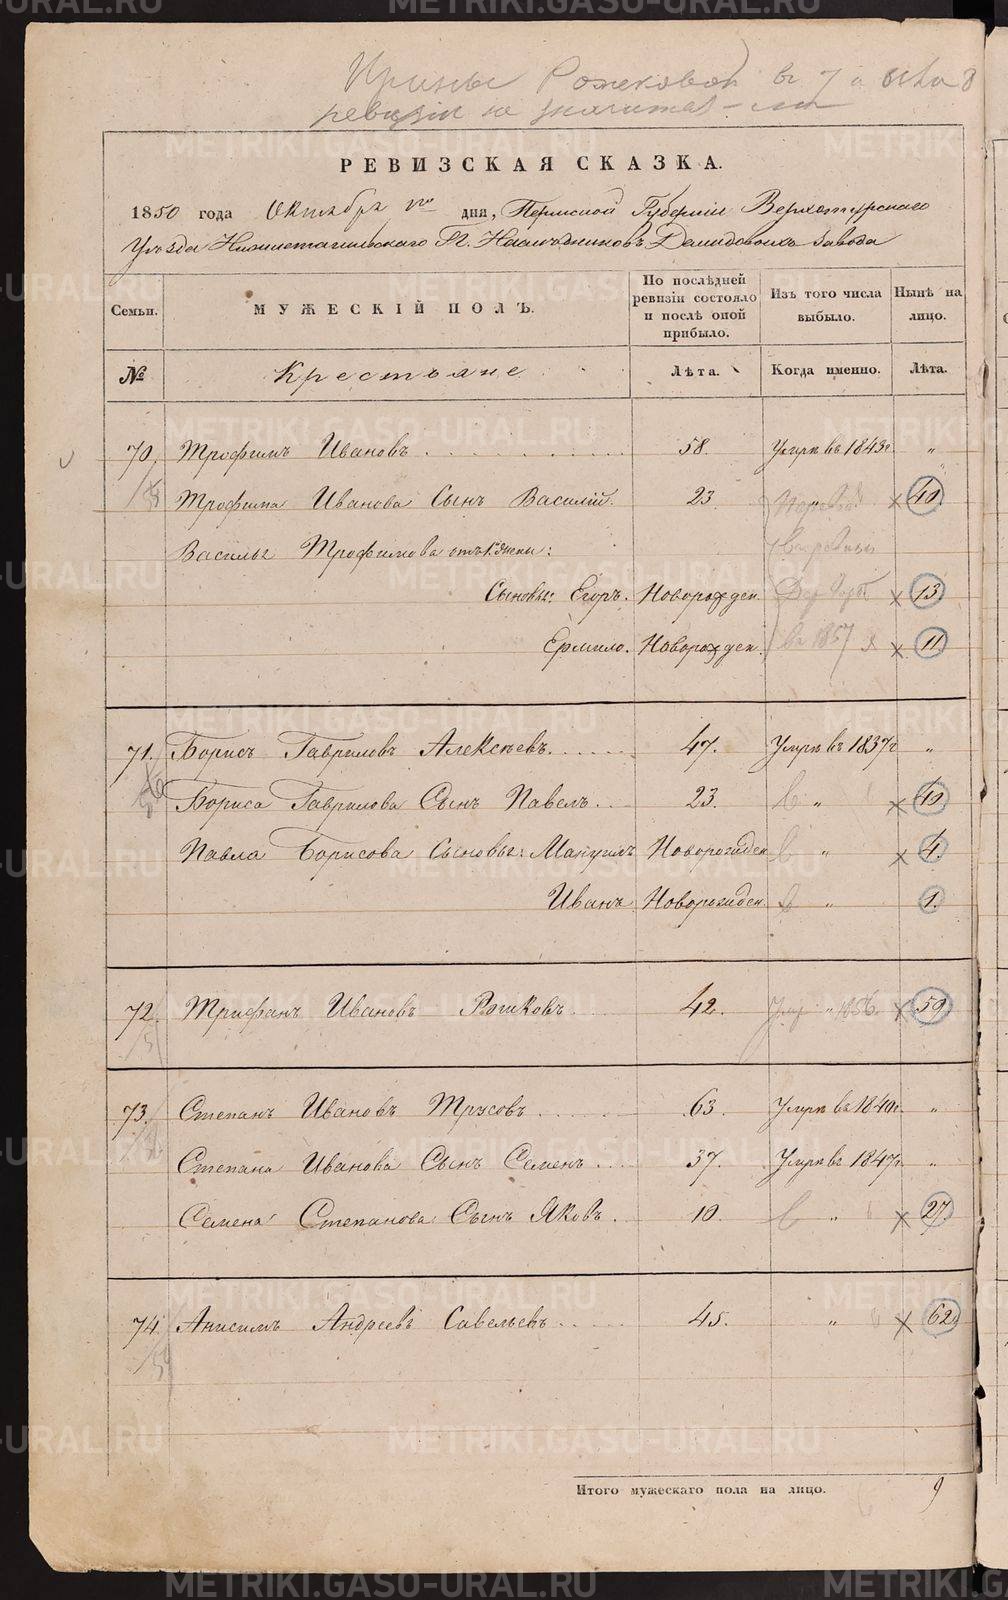 Ирины Рожековой въ 7 и
ревизіи не значится
РЕВИЗСКАЯ СКАЗКА.
1850 года Октября дня, Пермской Губерніи Верхотурскаго
Уѣзда Нижнетагильскаго Гг. Наслѣдниковъ Демидовыхъ завода
Семьи. МУЖЕСКІЙ ПОЛЪ. По послѣдней ревизіи состояло и послѣ оной прибыло. Изъ того числа выбыло. Нынѣ на лицо.
№ Крестьяне Лѣта. Когда именно. Лѣта.
70. Трофимъ Ивановъ 58. Умре въ 1843г. "
Трофима Иванова Сынъ Василій. 23. × 40.
Василья Трофимова отъ 1й жены:
Сыновья: Егоръ. Новорожден. × 13
Ермило. Новорожден. въ 1867 × 11.
71. Борисъ Гавриловъ Алексѣевъ 47. Умре въ 1837г "
56
Бориса Гаврилова Сынъ Павелъ 23. " × 40
Павла Борисова Сыновья: Мануилъ Новорожден " × 4.
Иванъ Новорожден " 1.
72. Трифанъ Ивановъ Рожковъ 42. Ум. " 1856. × 59
73. Степанъ Ивановъ Трусовъ 63. Умре въ 1840г. "
Степана Иванова Сынъ Семенъ 37. Умре въ 1847г. "
Семена Степанова Сынъ Яковъ. 10. " × 27.
74. Анисимъ Андреевъ Савельевъ 45. " × 62.
59
Итого мужескаго пола на лицо. 9
METRIKI.GASO-URAL.RU